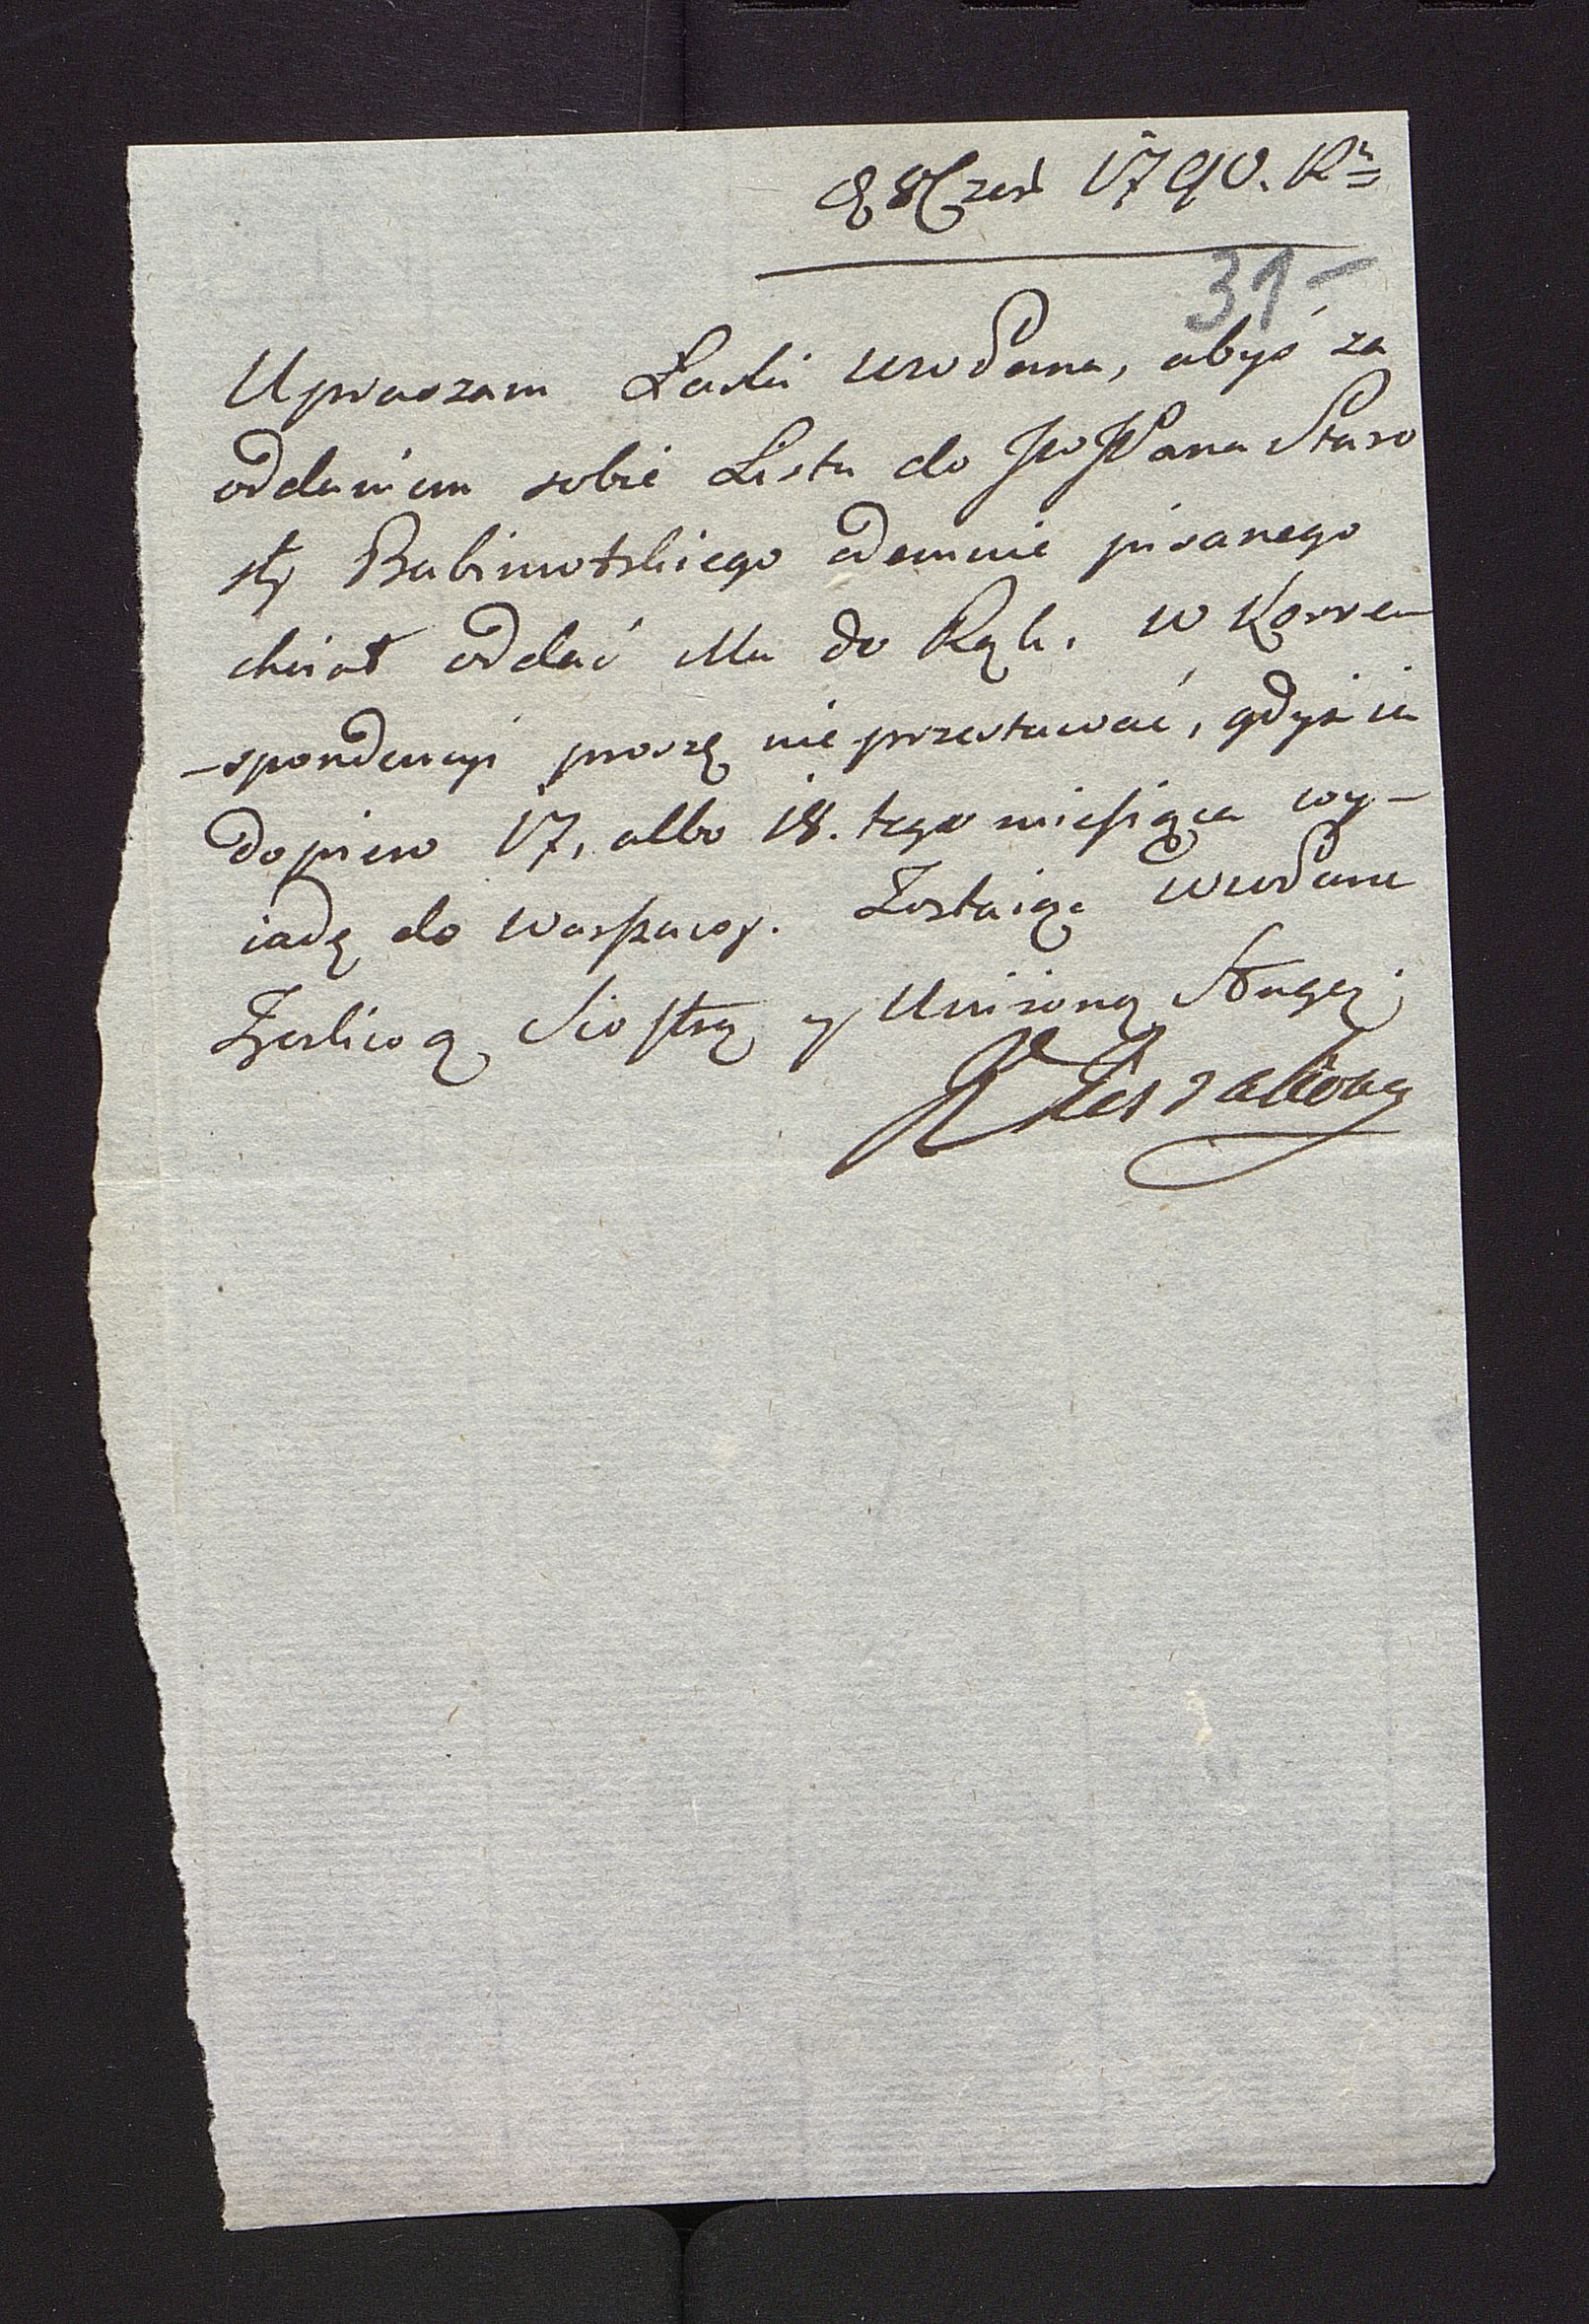 8 Czer 1790. R=
31-
Upraszam Łaski WwoDana, abyś za
oddaniem sobie Listu do JWJPana Staro
sty Babimotskiego odemnie pisanego
chciał oddać Mu do Rąk. W Korre-
-spondencyi proszę nie przestawać, gdyż ia
dopiero 17, albo 18. tego miesiąca wy-
iadę do Warszawy. Zostaiąc WwoDana
Życliwą Siostrą y Uniżoną Sługą;